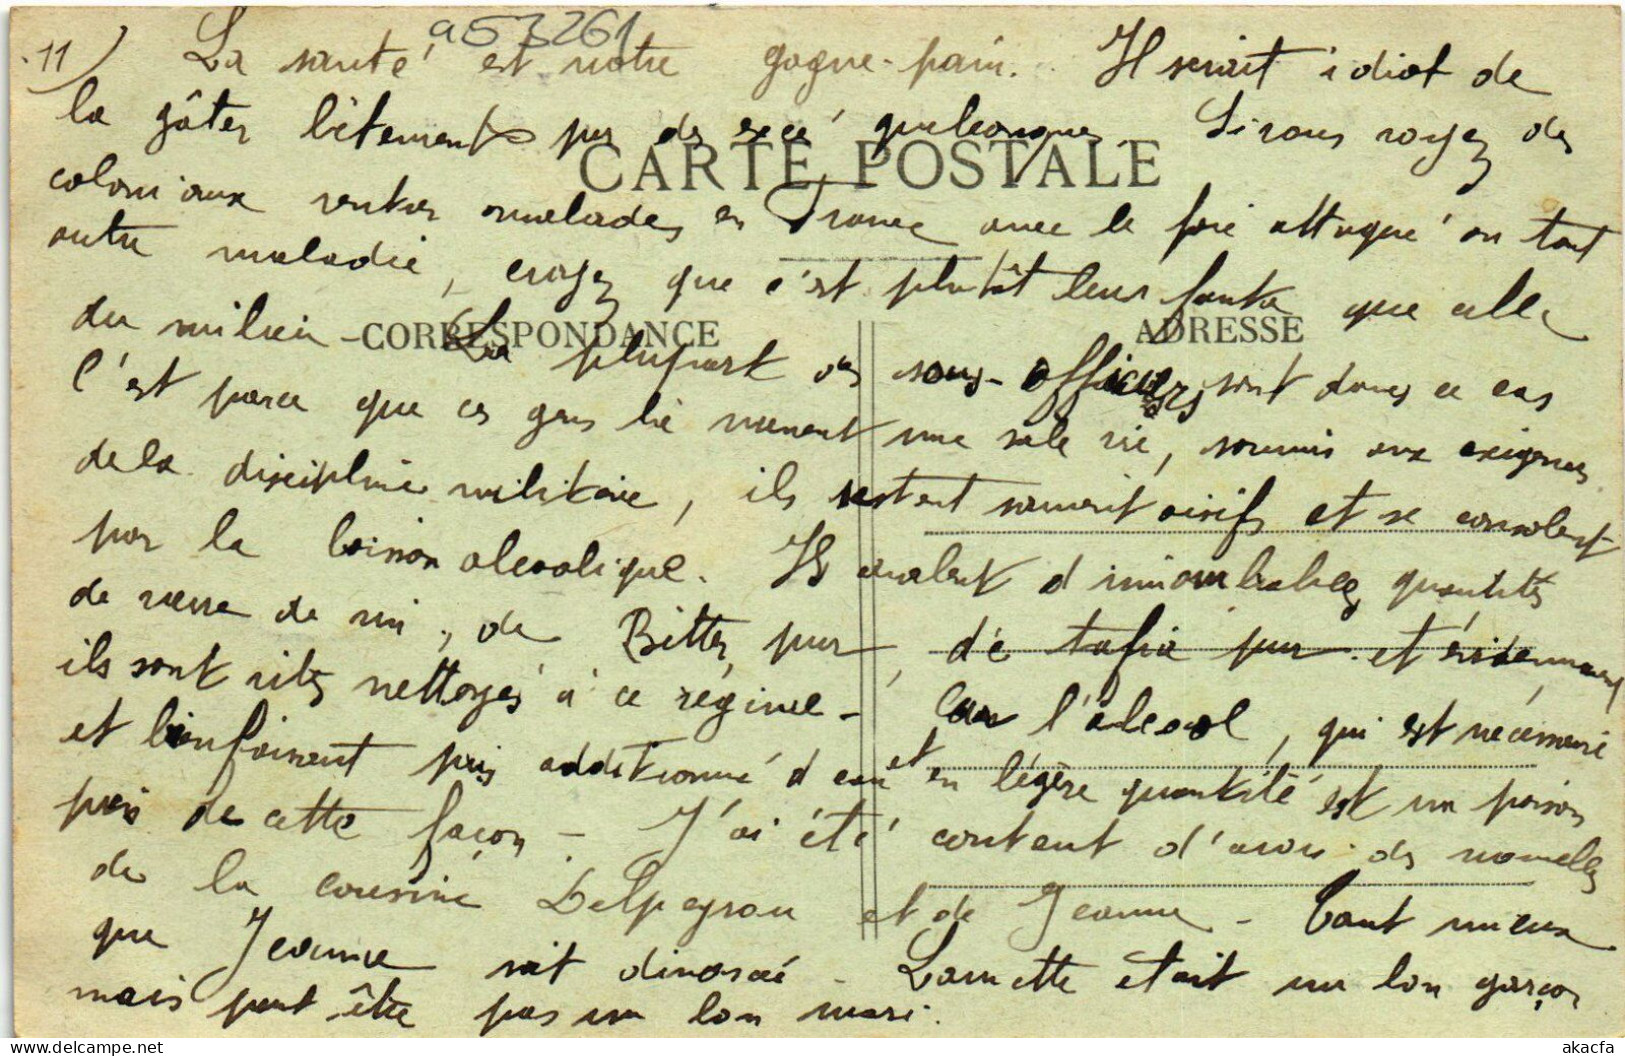 a573261
11) La santé est notre gagne-pain. Il serait idiot de
la gâter bêtement par des excé quelconques. Si vous voyez des
CARTE POSTALE
coloniaux rentrer malades en France avec le foie attaqué ou tout
autre maladie, croyez que c'est plutôt leur faute que celle
du milieu - La plupart des sous-officiers sont dans ce cas
CORRESPONDANCE
ADRESSE
c'est parce que ces gens là mènent une sale vie, soumis aux exigences
de la discipline militaire, ils restent souvent oisifs et se consolent
par la boisson alcoolique. Ils avalent d'innombrables quantités
de verre de vin, de Bitter pur, de tafia pur et évidemment
ils sont vites nettoyés à ce régime - Car l'alcool, qui est nécessaire
et bienfaisant pris additionné d'eau et en légère quantité est un poison
pris de cette façon - J'ai été content d'avoir des nouvelles
de la cousine Delpeyrou et de Jeanne - Tant mieux
que Jeanne soit divorcée - Lamette était un bon garçon
mais peut être pas un bon mari.
akacfa